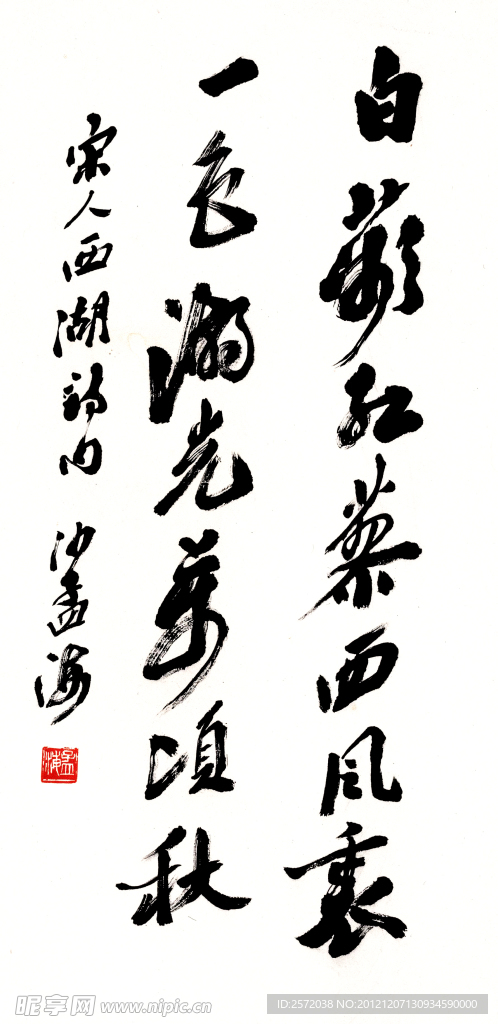 白蘋红蓼西风裏
一色湖光万頃秋
宋人西湖詩句 沙孟海
孟海
昵享网 www.nipic.cn
ID:2572038 NO:20121207130934590000